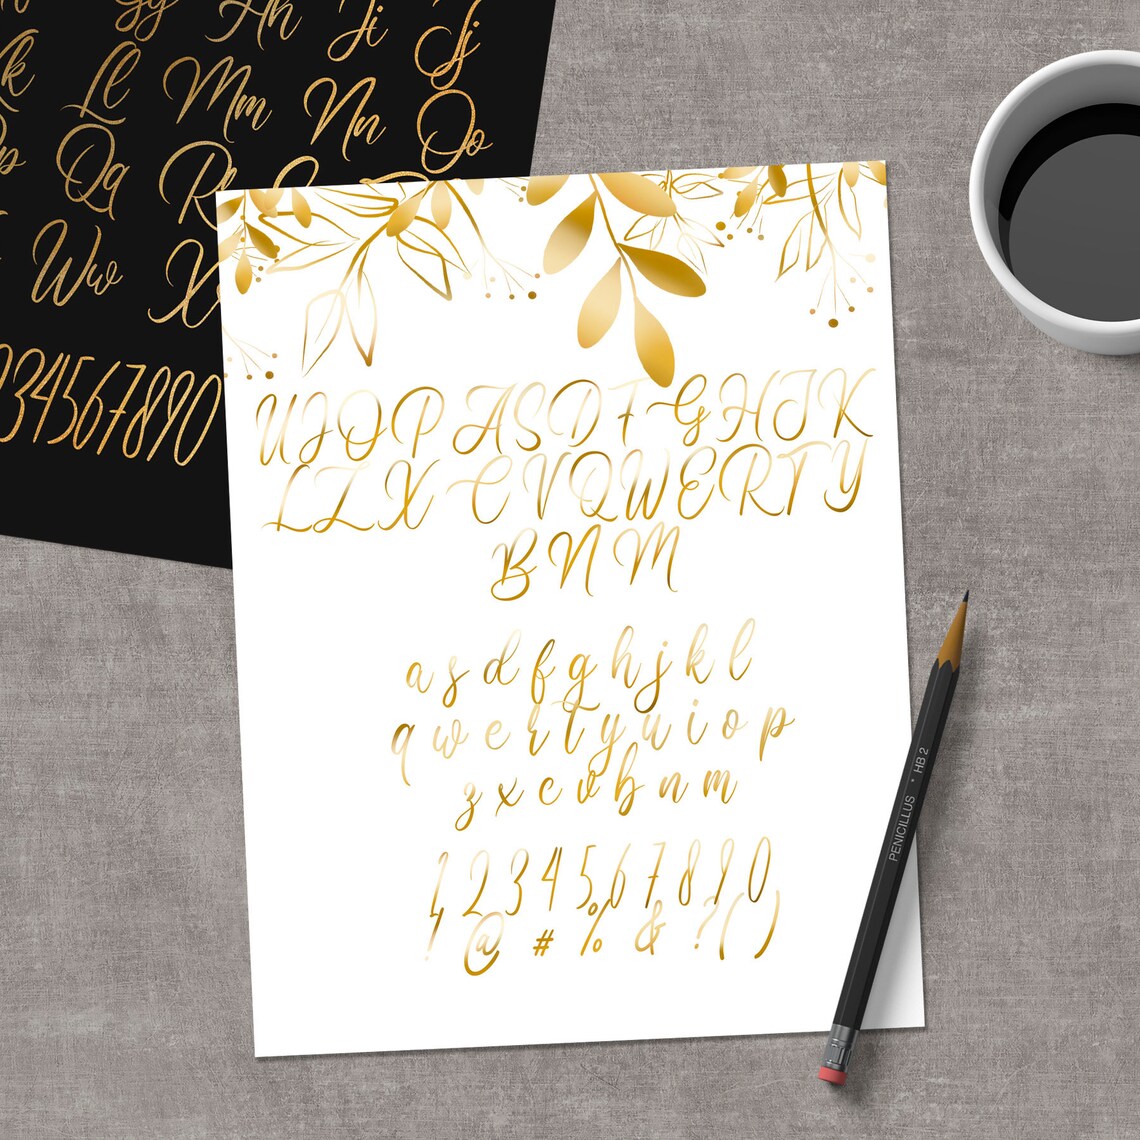 Gg Hh Ii Jj
Kk Ll Mm Nn Oo
Pp Qq R
Ww X
234567890
U I O P A S D F G H J K
L Z X C V Q W E R T Y
B N M
a s d f g h j k l
q w e r t y u i o p
z x c v b n m
1 2 3 4 5 6 7 8 9 0
! @ # % & ? ( )
PENICILLUS • HB 2